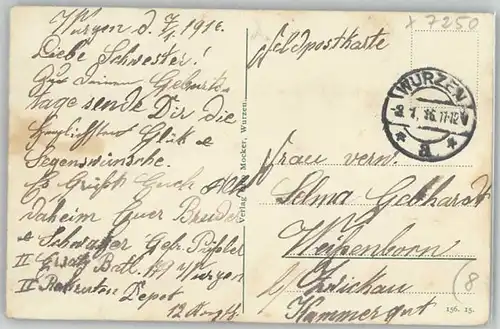 Wurzen d. 7/1. 1916.
Liebe Schwester!
Zu deinem Geburts-
tage sende Dir die
herzlichsten Glück e
Segenswünsche.
Es Grüßt Euch Alle
daheim Euer Bruder
e Schwager Gebr.
II Ersatz Batl. 179 Wurzen
II Rekruten Depot
12 Korpsch.
Verlag Mocker, Wurzen.
Feldpostkarte
x 7250
WURZEN
-8.1.16.11-12
* a *
Frau verw.
Selma Gebhardt
Weißenborn
b/ Zwickau
Kammergut
8
156. 15.